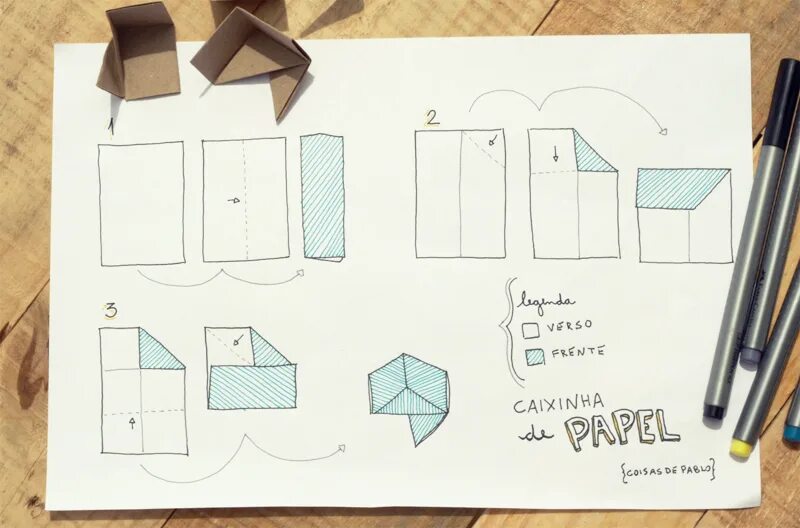 1
2
3
legenda
VERSO
FRENTE
CAIXINHA
de PAPEL
{COISAS DE PABLO}